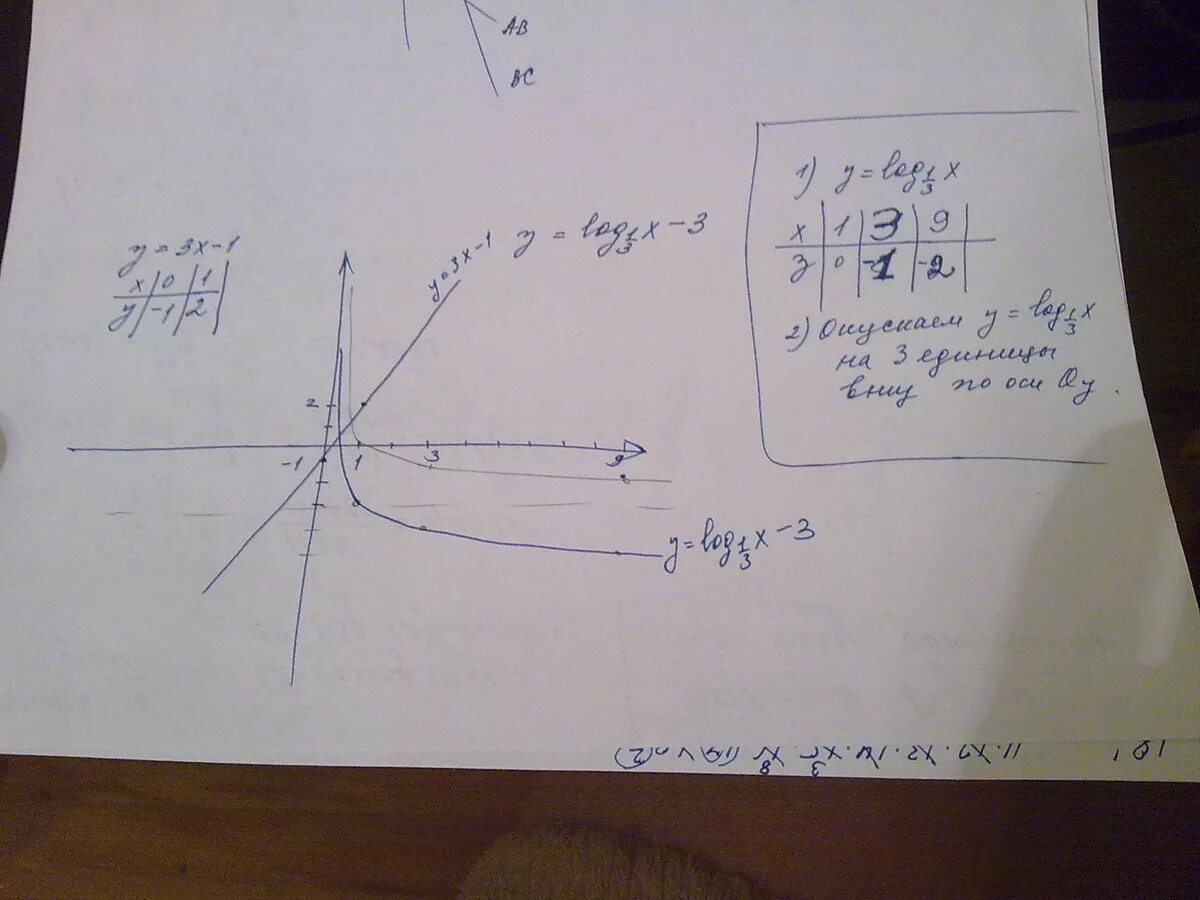 AB
BC
y = 3x-1
x 0 1
y -1 2
y = 3x-1
y = log 1/3 x - 3
2
-1 1 3 9
y = log 1/3 x - 3
1) y = log 1/3 x
x 1 3 9
3 0 -1 -2
2) Опускаем y = log 1/3 x
на 3 единицы
вниз по оси Oy.